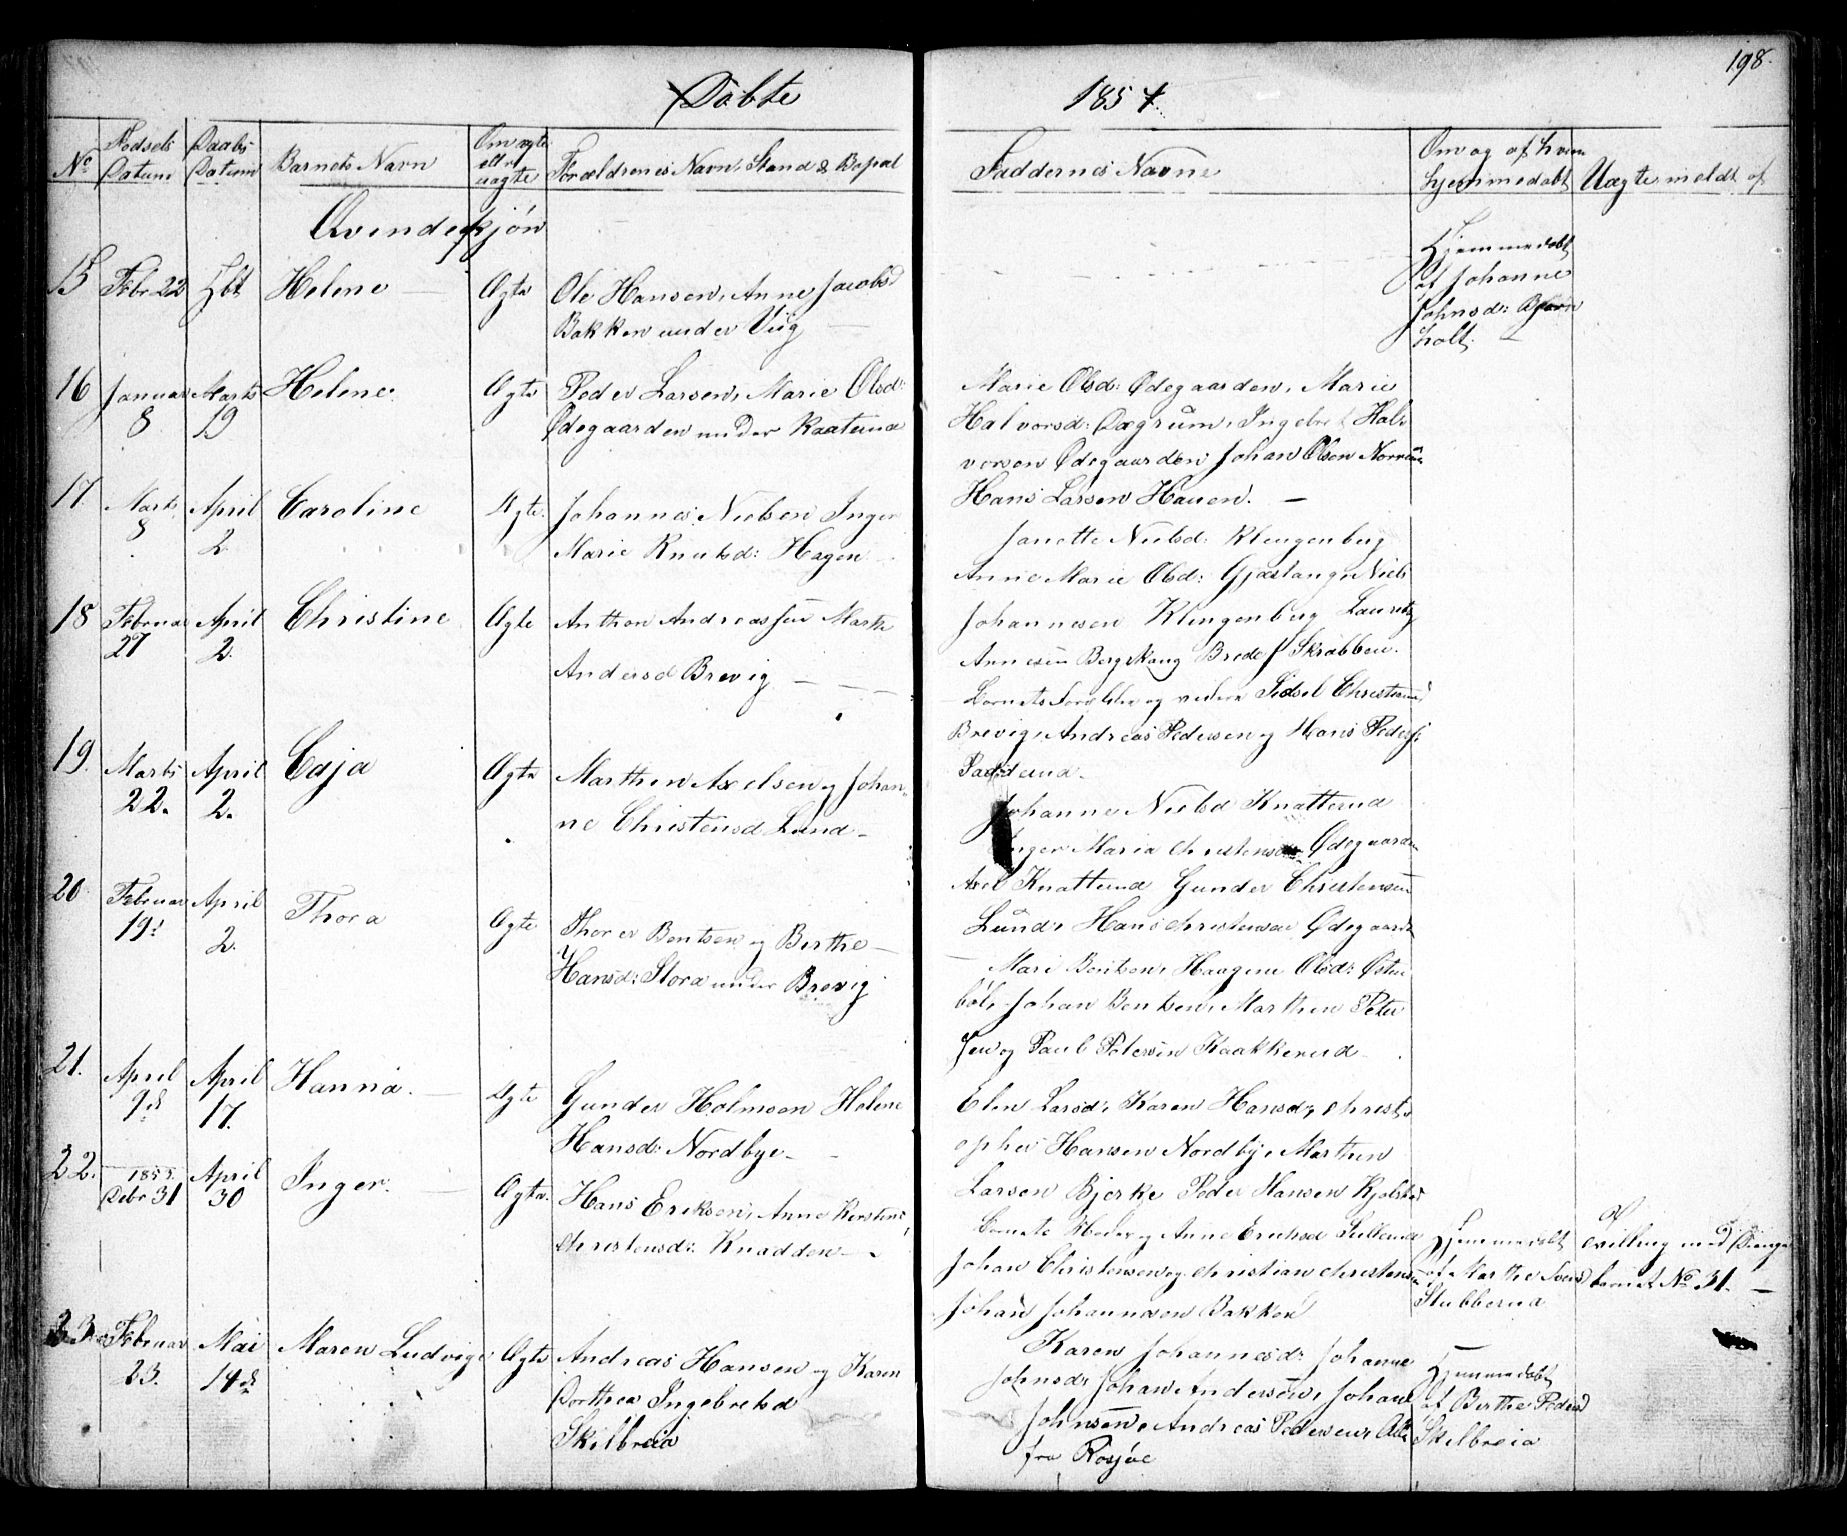 198.
Døbte 1854.
No Fødsels Datum Daabs Datum Barnets Navn Om ægte eller uægte Forældrenes Navn, Stand & Bopæl Faddernes Navne Om og af hvem hjemmedøbt Uægte meldt af
Qvindekjøn
15 Febr 22 Hbt Helene Ægte Ole Hansen, Anne Jacobsd
Bakken under Viig
Hjemmedøbt
af Johanne
Johnsd: Bjørn
holt.
16 Januar 8 Marts 19 Helene Ægte Peder Larsen, Marie Olsd:
Ødegaarden under Raaterud
Marie Olsd: Ødegaarden, Marie
Halvorsd: Dægrum, Ingebret Hal
vorsen Ødegaarden, Johan Olsen
Hans Larsen Hauen.
17 Marts 8 April 2 Caroline Ægte. Johannes Nielsen Inger
Marie Knutsd: Hagen
Janette Nielsd: Klengenberg
Anne Marie Olsd: Gjæstang, Niels
Johannesen Klengenberg Lauritz
Annesen Bergskaug Brede Skrabben.
18 Februar 27 April 2. Christine Ægte Anthon Andreassen Marthe
Andersd Brevig
Barnets Forældre og videre Sidsel Christiansd
Brevig, Andreas Pedersen og Hans Peders:
Paderud.
19. Marts 22. April 2. Caja Ægte Marthin Axelsen og Johan
ne Christensd Lund
Johanne Nielsd Knatterud
Inger Maria Christensd Ødegaarden
Axel Knatterud Gunder Christensen
Lund, Hans Christensen Ødegaarden
20 Februar 19: April 2. Thora Ægte Thorer Bentsen og Berthe
Hansd: Stora under Brevig
Mari Bentsen, Haagene Olsd: Østen
böl, Johan Bentsen, Marthin Peter
sen og Paul Petersen Kaakkerud
21. April 9d April 17. Hanna. Ægte Gunder Holmsen Helene
Hansd: Nordbye
Elen Larsd:, Karen Hansd:, Christ
opher Hansen Nordby, Marthin
Larsen Bjerke Peder Hansen Kjølstad
22. 1853. Debr 31 April 30 Inger. Ægte. Hans Eriksen, Anne Kirstene
Christensd: Knadden
Barnets Moder og Anne Eriksd Sillerud
Johan Christensen og Christian Christensen
Johan Johannesen Bakken
Hjemmedøbt
af Marthe Svensd
Stubberud
Tvilling med Drenge
barnet No 31.
23. Februar 23. Mai 14d Maren Ludvige Ægte Andreas Hansen og Karen
Dorthea Ingebretsd
Skilbreia
Karen Johannesd: Johanne
Johnsd: Johan Andersen, Johan
Johnsen, Andreas Pedersen, Alle
fra Rosjøe
Hjemmedøbt
af Berthe Pedersd
Skelbreia